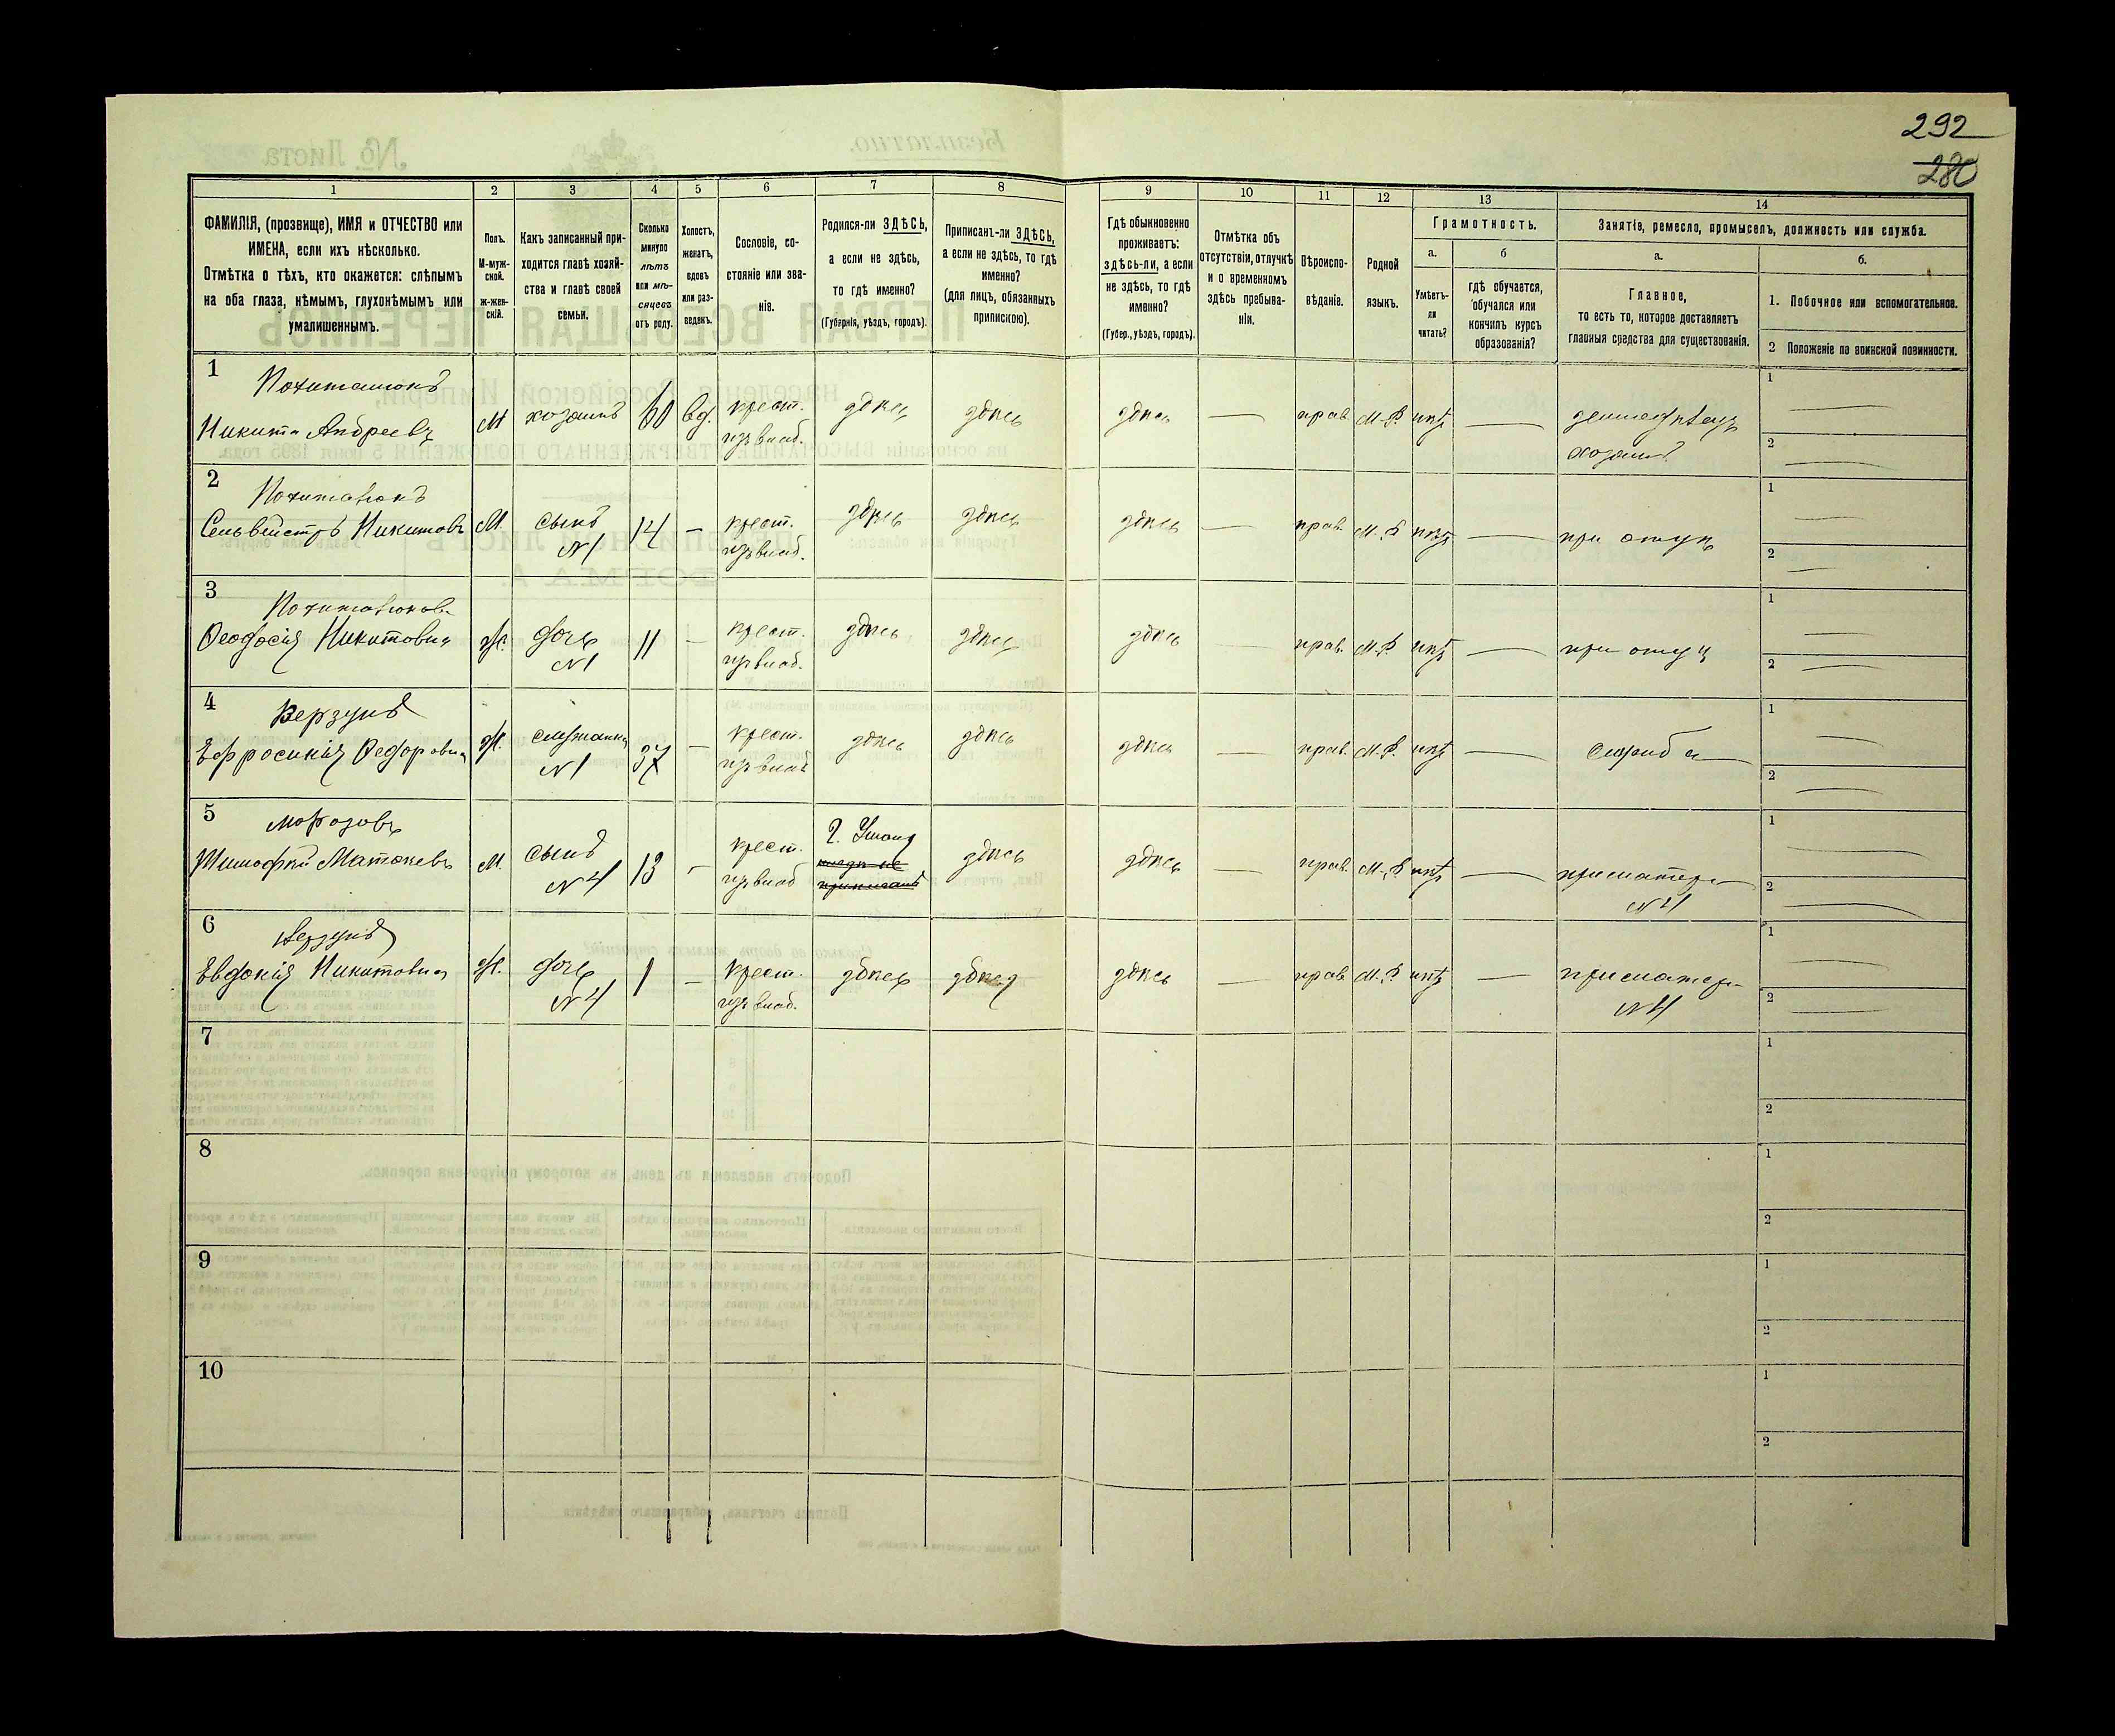 292
280
1 2 3 4 5 6 7 8 9 10 11 12 13 14
ФАМИЛІЯ, (прозвище), ИМЯ и ОТЧЕСТВО или
ИМЕНА, если ихъ нѣсколько.
Отмѣтка о тѣхъ, кто окажется: слѣпымъ
на оба глаза, нѣмымъ, глухонѣмымъ или
умалишеннымъ.
Полъ.
М-муж-
ской.
Ж-жен-
скій.
Какъ записанный при-
ходится главѣ хозяй-
ства и главѣ своей
семьи.
Сколько
минуло
лѣтъ
или мѣ-
сяцевъ
отъ роду.
Холостъ,
женатъ,
вдовъ
или раз-
веденъ.
Сословіе, со-
стояніе или зва-
ніе.
Родился-ли ЗДѢСЬ,
а если не здѣсь,
то гдѣ именно?
(Губернія, уѣздъ, городъ).
Приписанъ-ли ЗДѢСЬ,
а если не здѣсь, то гдѣ
именно?
(для лицъ, обязанныхъ
припискою).
Гдѣ обыкновенно
проживаетъ:
здѣсь-ли, а если
не здѣсь, то гдѣ
именно?
(Губер., уѣздъ, городъ).
Отмѣтка объ
отсутствіи, отлучкѣ
и о временномъ
здѣсь пребыва-
ніи.
Вѣроиспо-
вѣданіе.
Родной
языкъ.
Грамотность.
а.
Умѣетъ-
ли
читать?
б
гдѣ обучается,
обучался или
кончилъ курсъ
образованія?
Занятіе, ремесло, промыселъ, должность или служба.
а.
Главное,
то есть то, которое доставляетъ
главныя средства для существованія.
б.
1. Побочное или вспомогательное.
2 Положеніе по воинской повинности.
1
Никита Андреевъ М хозяинъ 60 вд. крест. здѣсь здѣсь здѣсь — прав. М.-Р. нѣтъ —
хозяинъ
1
2
2
Сельвейстръ Никитовъ М. сынъ 14 — крест. здѣсь здѣсь здѣсь — прав. М.-Р. нѣтъ — при отцѣ
N 1
1
2
3
Феодосія Никитовна Ж. дочь 11 — крест. здѣсь здѣсь здѣсь — прав. М.-Р. нѣтъ — при отцѣ
N 1
1
2
4 Верзунъ
Ефросинія Федоровна Ж. служанка 37 — крест. здѣсь здѣсь здѣсь — прав. М.-Р. нѣтъ — служба
N 1
1
2
5 Морозовъ
Тимофей М. сынъ 13 — крест. г. Умань здѣсь здѣсь — прав. М.-Р. нѣтъ — при матери
N 4 N 4
1
2
6 Верзунъ
Евдокія Никитовна Ж. дочь 1 — крест. здѣсь здѣсь здѣсь — прав. М.-Р. нѣтъ — при матери
N 4 N 4
1
2
7
1
2
8
1
2
9
1
2
10
1
2